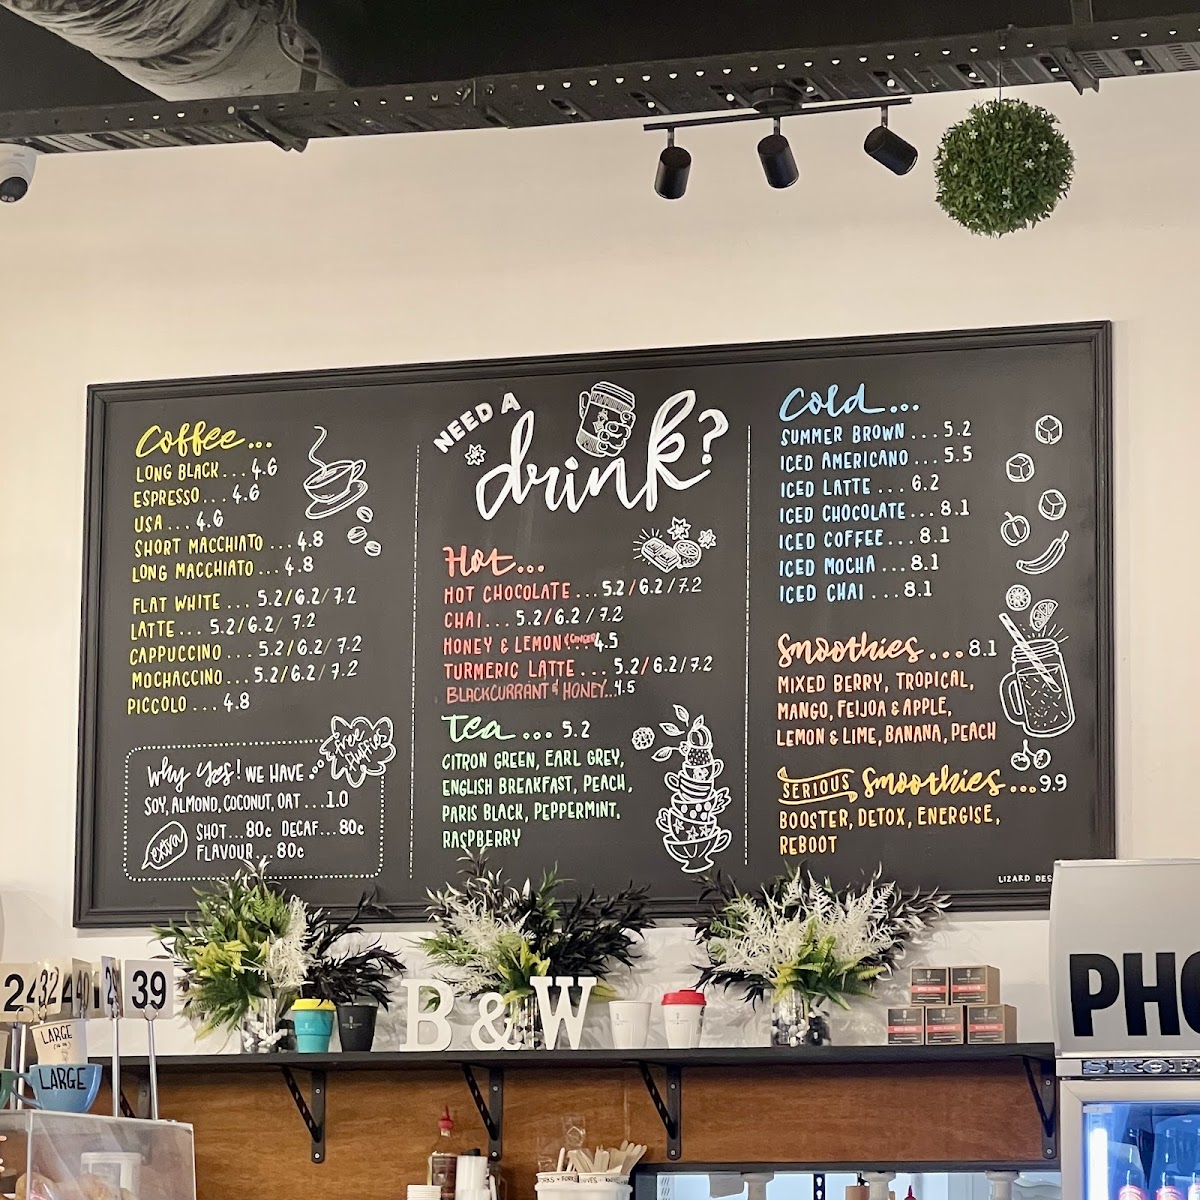 Coffee...
LONG BLACK... 4.6
ESPRESSO... 4.6
USA... 4.6
SHORT MACCHIATO ... 4.8
LONG MACCHIATO ... 4.8
FLAT WHITE ... 5.2/6.2/7.2
LATTE... 5.2/6.2/ 7.2
CAPPUCCINO ... 5.2/6.2/ 7.2
MOCHACCINO... 5.2/6.2/ 7.2
PICCOLO ... 4.8
Why Yes! WE HAVE ...
Free Fluffies
SOY, ALMOND, COCONUT, OAT ...1.0
extra
SHOT...80c DECAF...80c
FLAVOUR... 80c
NEED A
drink?
Hot...
HOT CHOCOLATE ...5.2/6.2/7.2
CHAI... 5.2/6.2/7.2
HONEY & LEMON & GINGER ... 4.5
TURMERIC LATTE ... 5.2/6.2/7.2
BLACKCURRANT & HONEY...4.5
Tea ... 5.2
CITRON GREEN, EARL GREY,
ENGLISH BREAKFAST, PEACH,
PARIS BLACK, PEPPERMINT,
RASPBERRY
Cold...
SUMMER BROWN ...5.2
ICED AMERICANO ...5.5
ICED LATTE ... 6.2
ICED CHOCOLATE... 8.1
ICED COFFEE... 8.1
ICED MOCHA ...8.1
ICED CHAI ...8.1
Smoothies ...8.1
MIXED BERRY, TROPICAL,
MANGO, FEIJOA & APPLE,
LEMON & LIME, BANANA, PEACH
SERIOUS Smoothies ...9.9
BOOSTER, DETOX, ENERGISE,
REBOOT
LIZARD DES
24
32
39
LARGE
LARGE
B & W
PHO